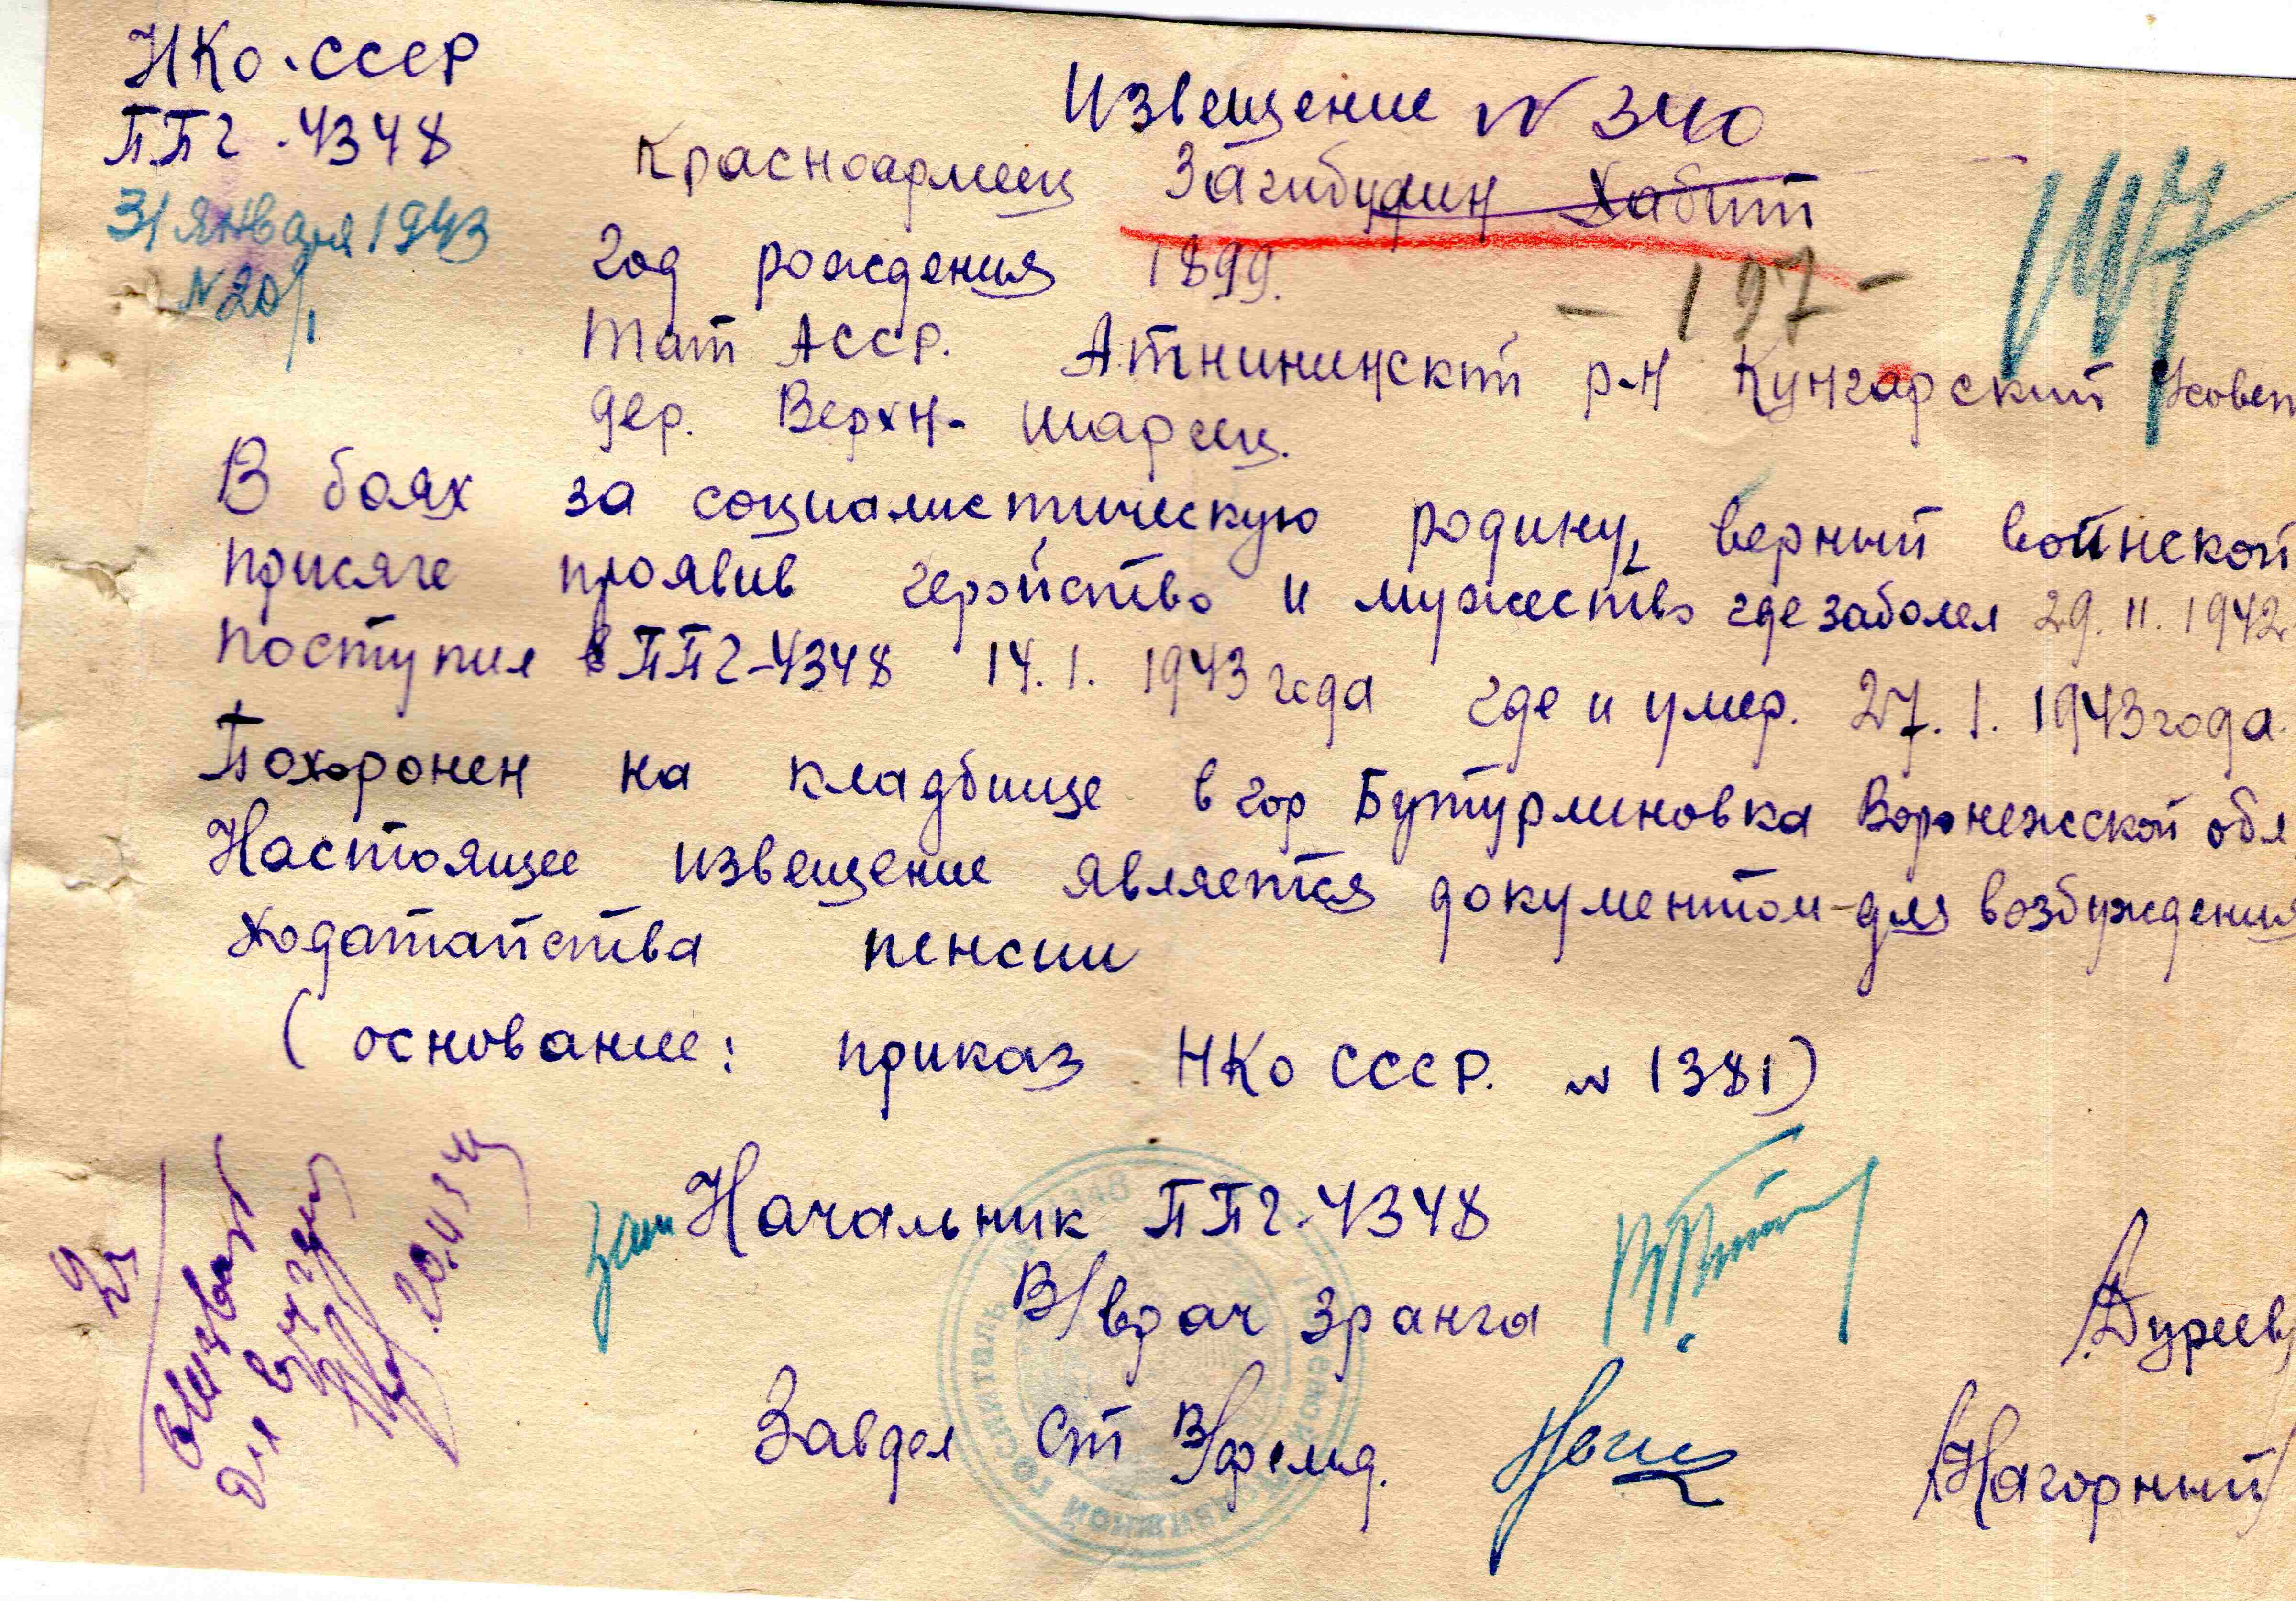 НКО. СССР
ППГ - 4348
31 января 1943
N 20/1
Извещение N 340
Красноармеец Загибудин Хабит
год рождения 1899.
147
- 197 -
Тат АССР. Атнининский р-н Кунгарский с/совет
дер. Верхн- шареец.
В боях за социалистическую родину, верный воинской
присяге проявив геройство и мужество где заболел 29.11.1942
поступил в ППГ-4348 14.1.1943 года где и умер. 27.1.1943 года.
Похоронен на кладбище в гор Бутурлиновка Воронежской обл
Настоящее извещение является документом-для возбуждения
ходатайства пенсии
(основание: приказ НКО СССР. N 1381)
зам Начальник ППГ-4348
В/врач 3 ранга /Дуреев/
Завдел Ст В/фельд. /Нагорный/
20.4.43
ПОЛЕВОЙ ПОДВИЖНОЙ ГОСПИТАЛЬ № 4348